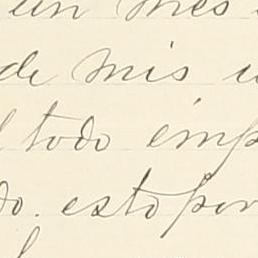 un mes
de mis
todo imp
do. esto por